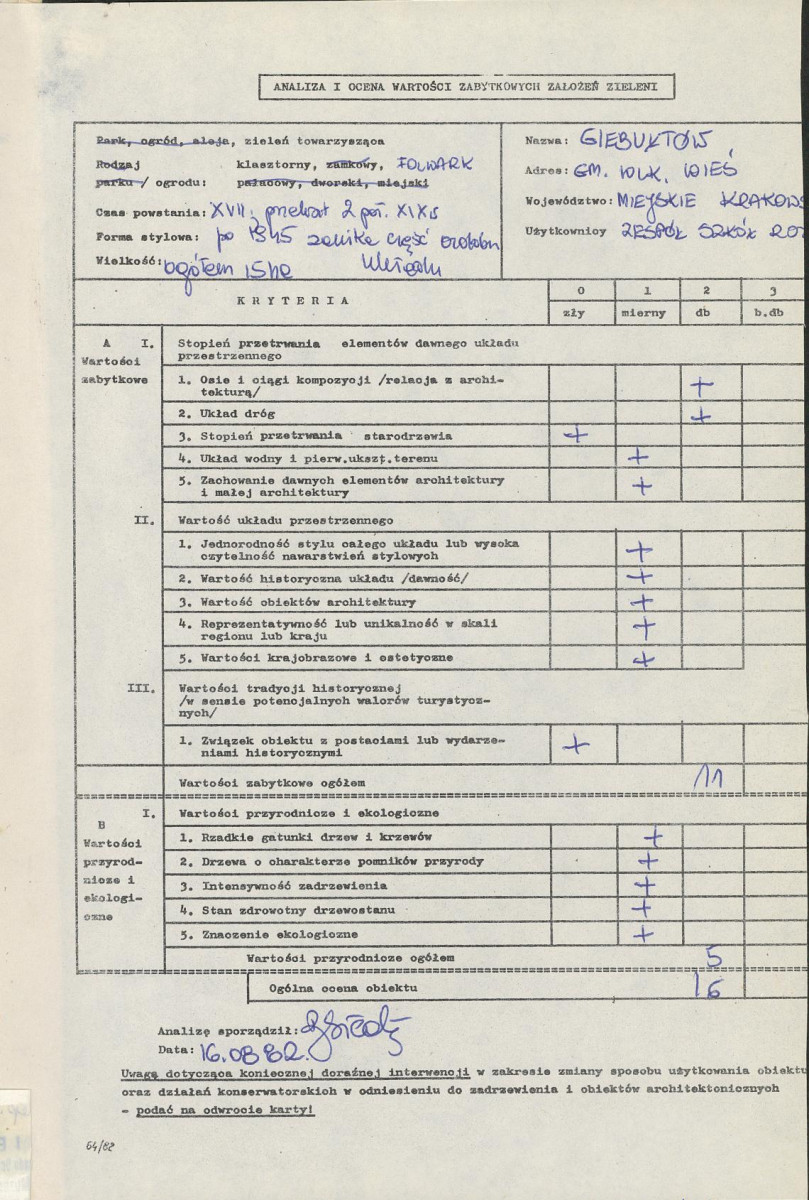 ANALIZA I OCENA WARTOŚCI ZABYTKOWYCH ZAŁOŻEŃ ZIELENI
Park, ogród, aleja, zieleń towarzysząca
Rodzaj klasztorny, zamkowy, FOLWARK
parku / ogrodu: pałacowy, dworski, miejski
Czas powstania: XVII, przekszt 2 poł. XIX w
Forma stylowa: po 1945 zanika część ozdobn
Wielkość: ogółem 15 ha układu
Nazwa: GIEBUŁTÓW
Adres: GM. WLK. WIEŚ
Województwo: MIEJSKIE KRAKOWS
Użytkownicy ZESPÓŁ SZKÓŁ ROL
KRYTERIA
0 1 2 3
zły mierny db b.db
A I. Stopień przetrwania elementów dawnego układu
Wartości przestrzennego
zabytkowe 1. Osie i ciągi kompozycji /relacja z archi-
tekturą/ +
2. Układ dróg +
3. Stopień przetrwania starodrzewia +
4. Układ wodny i pierw.ukszt.terenu +
5. Zachowanie dawnych elementów architektury
i małej architektury +
II. Wartość układu przestrzennego
1. Jednorodność stylu całego układu lub wysoka
czytelność nawarstwień stylowych +
2. Wartość historyczna układu /dawność/ +
3. Wartość obiektów architektury +
4. Reprezentatywność lub unikalność w skali
regionu lub kraju +
5. Wartości krajobrazowe i estetyczne +
III. Wartości tradycji historycznej
/w sensie potencjalnych walorów turystycz-
nych/
1. Związek obiektu z postaciami lub wydarze-
niami historycznymi +
Wartości zabytkowe ogółem 11
B I. Wartości przyrodnicze i ekologiczne
Wartości 1. Rzadkie gatunki drzew i krzewów +
przyrod- 2. Drzewa o charakterze pomników przyrody +
nicze i 3. Intensywność zadrzewienia +
ekologi- 4. Stan zdrowotny drzewostanu +
czne 5. Znaczenie ekologiczne +
Wartości przyrodnicze ogółem 5
Ogólna ocena obiektu 16
Analizę sporządził:
Data: 16.08.82.
Uwagę dotyczącą koniecznej doraźnej interwencji w zakresie zmiany sposobu użytkowania obiektu
oraz działań konserwatorskich w odniesieniu do zadrzewienia i obiektów architektonicznych
- podać na odwrocie karty!
64/82